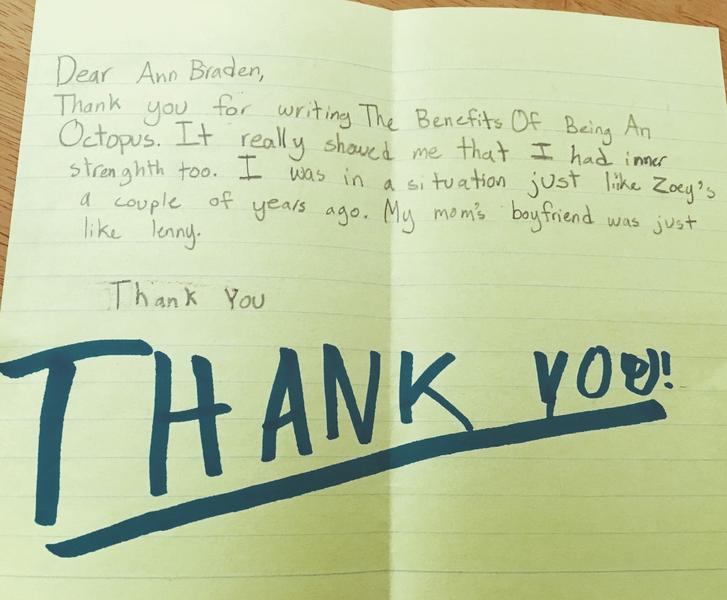 Dear Ann Braden,
Thank you for writing The Benefits Of Being An
Octopus. It really showed me that I had inner
strenghth too. I was in a situation just liike Zoey's
a couple of years ago. My mom's boyfriend was just
like lenny.
Thank You
THANK YOU!